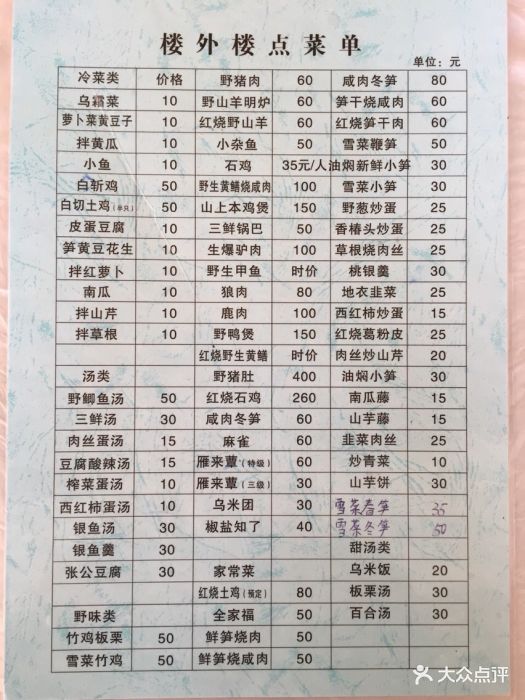 楼外楼点菜单
单位：元
冷菜类 价格 野猪肉 60 咸肉冬笋 80
乌霜菜 10 野山羊明炉 60 笋干烧咸肉 60
萝卜菜黄豆子 10 红烧野山羊 60 红烧笋干肉 60
拌黄瓜 10 小杂鱼 50 雪菜鞭笋 50
小鱼 10 石鸡 35元/人 油焖新鲜小笋 30
白斩鸡 50 野生黄鳝烧咸肉 100 雪菜小笋 30
白切土鸡（半只） 50 山上本鸡煲 150 野葱炒蛋 25
皮蛋豆腐 10 三鲜锅巴 50 香椿头炒蛋 25
笋黄豆花生 10 生爆驴肉 100 草根烧肉丝 25
拌红萝卜 10 野生甲鱼 时价 桃银羹 30
南瓜 10 狼肉 80 地衣韭菜 25
拌山芹 10 鹿肉 100 西红柿炒蛋 15
拌草根 10 野鸭煲 150 红烧葛粉皮 25
红烧野生黄鳝 时价 肉丝炒山芹 20
汤类 野猪肚 400 油焖小笋 30
野鲫鱼汤 50 红烧石鸡 260 南瓜藤 15
三鲜汤 30 咸肉冬笋 60 山芋藤 15
肉丝蛋汤 15 麻雀 60 韭菜肉丝 25
豆腐酸辣汤 15 雁来蕈（特级） 60 炒青菜 10
榨菜蛋汤 10 雁来蕈（三级） 30 山芋饼 30
西红柿蛋汤 10 乌米团 30 雪菜春笋 35
银鱼汤 30 椒盐知了 40 雪菜冬笋 50
银鱼羹 30 甜汤类
张公豆腐 30 家常菜 乌米饭 20
红烧土鸡（预定） 80 板栗汤 30
野味类 全家福 50 百合汤 30
竹鸡板栗 50 鲜笋烧肉 50
雪菜竹鸡 50 鲜笋烧咸肉 50
大众点评